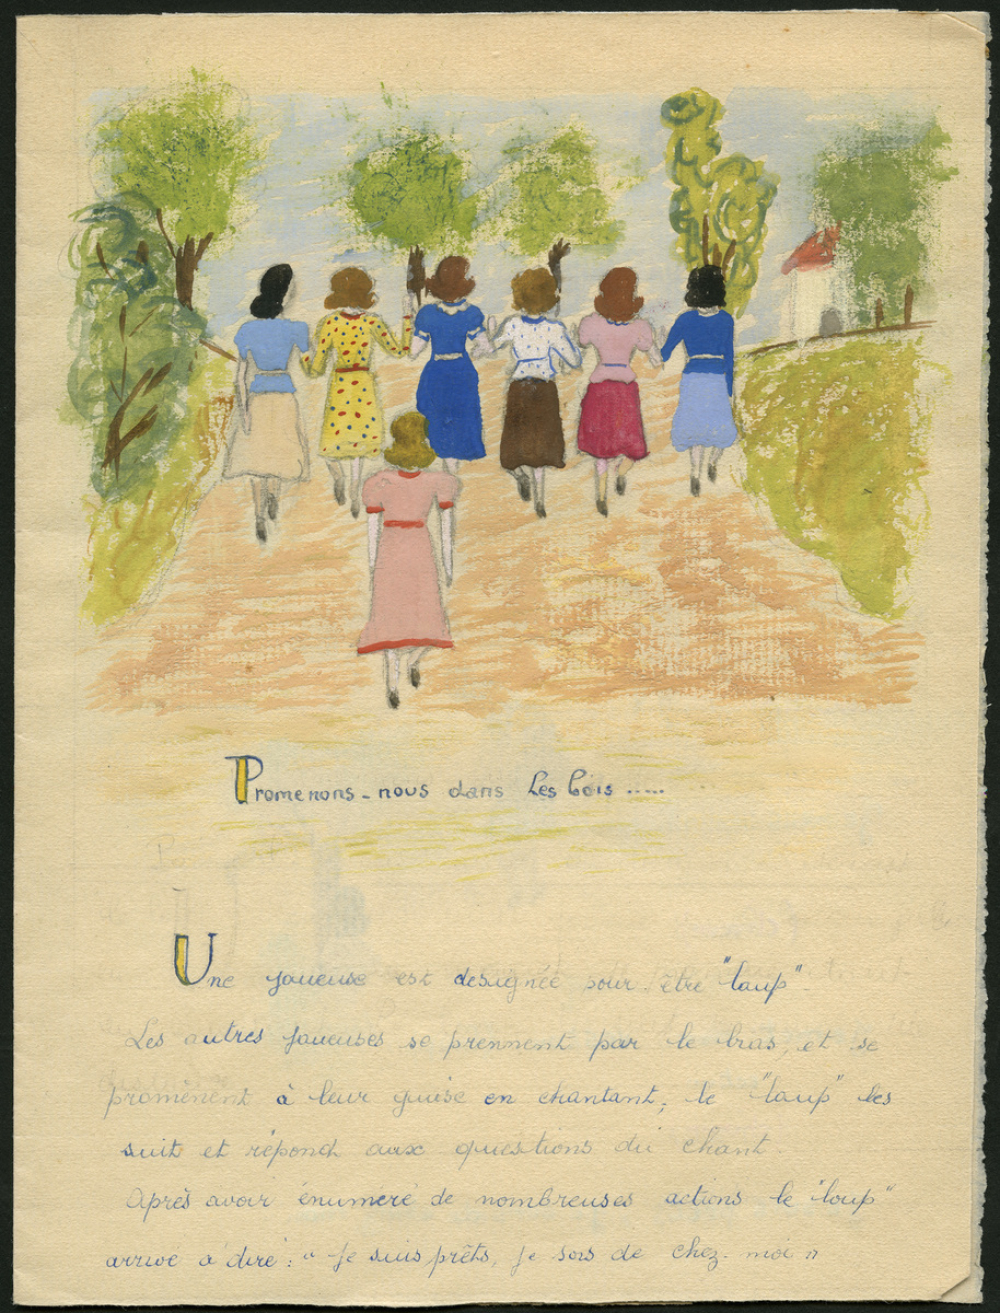 Promenons-nous dans Les bois .....
Une joueuse est designée pour être "loup"
Les autres joueuses se prennent par le bras, et se
promènent à leur guise en chantant, le "loup" les
suit et répond aux questions du chant.
Après avoir énuméré de nombreuses actions le "loup"
arrive à dire : " Je suis prêts, je sors de chez-moi "